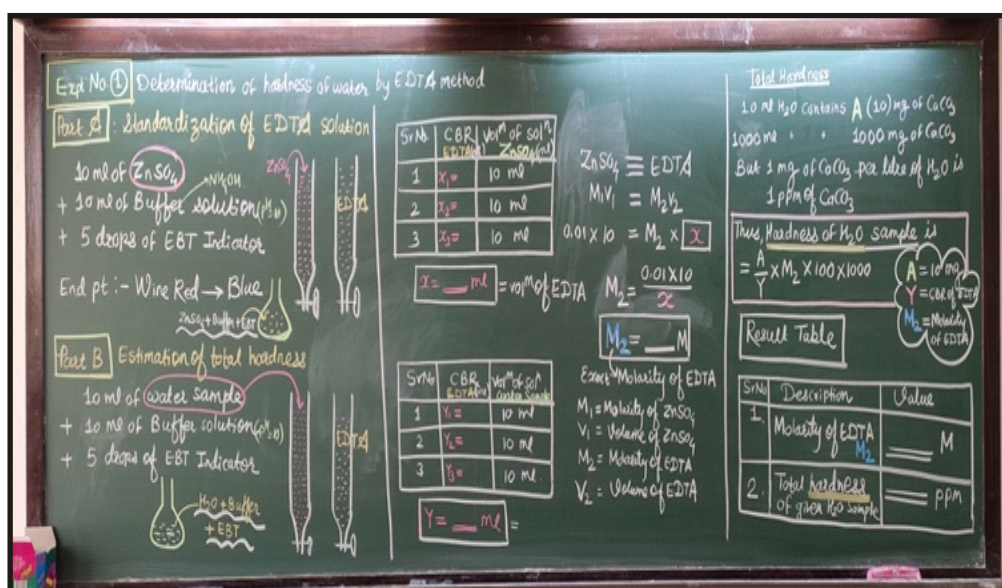 Expt No ① Determination of hardness of water by EDTA method
Part A : Standardization of EDTA solution
10 ml of ZnSO4
NH4OH
+ 10 ml of Buffer solution (pH-10)
+ 5 drops of EBT Indicator
End pt :- Wine Red → Blue
ZnSO4 + Buffer + EBT
ZnSO4
EDTA
Part B Estimation of total hardness
10 ml of water sample
+ 10 ml of Buffer solution (pH-10)
+ 5 drops of EBT Indicator
H2O + Buffer
+ EBT
EDTA
Sr No CBR EDTA (ml) volm of soln ZnSO4 (ml)
1 x1= 10 ml
2 x2= 10 ml
3 x3= 10 ml
x = __ ml = volm of EDTA
Sr No CBR EDTA volm of soln water sample
1 Y1= 10 ml
2 Y2= 10 ml
3 Y3= 10 ml
Y = __ ml =
ZnSO4 ≡ EDTA
M1V1 = M2V2
0.01 x 10 = M2 x x
M2 = 0.01x10 / x
M2 = __ M
Exact Molarity of EDTA
M1 = Molarity of ZnSO4
V1 = Volume of ZnSO4
M2 = Molarity of EDTA
V2 = Volume of EDTA
Total Hardness
10 ml H2O contains A (10) mg of CaCO3
1000 ml " " 1000 mg of CaCO3
But 1 mg of CaCO3 per litre of H2O is
1 ppm of CaCO3
Thus, Hardness of H2O sample is
= A/Y x M2 x 100 x 1000
A = 10 mg
Y = CBR of EDTA
M2 = Molarity of EDTA
Result Table
Sr No Description Value
1. Molarity of EDTA M2 __ M
2. Total hardness of given H2O sample __ ppm